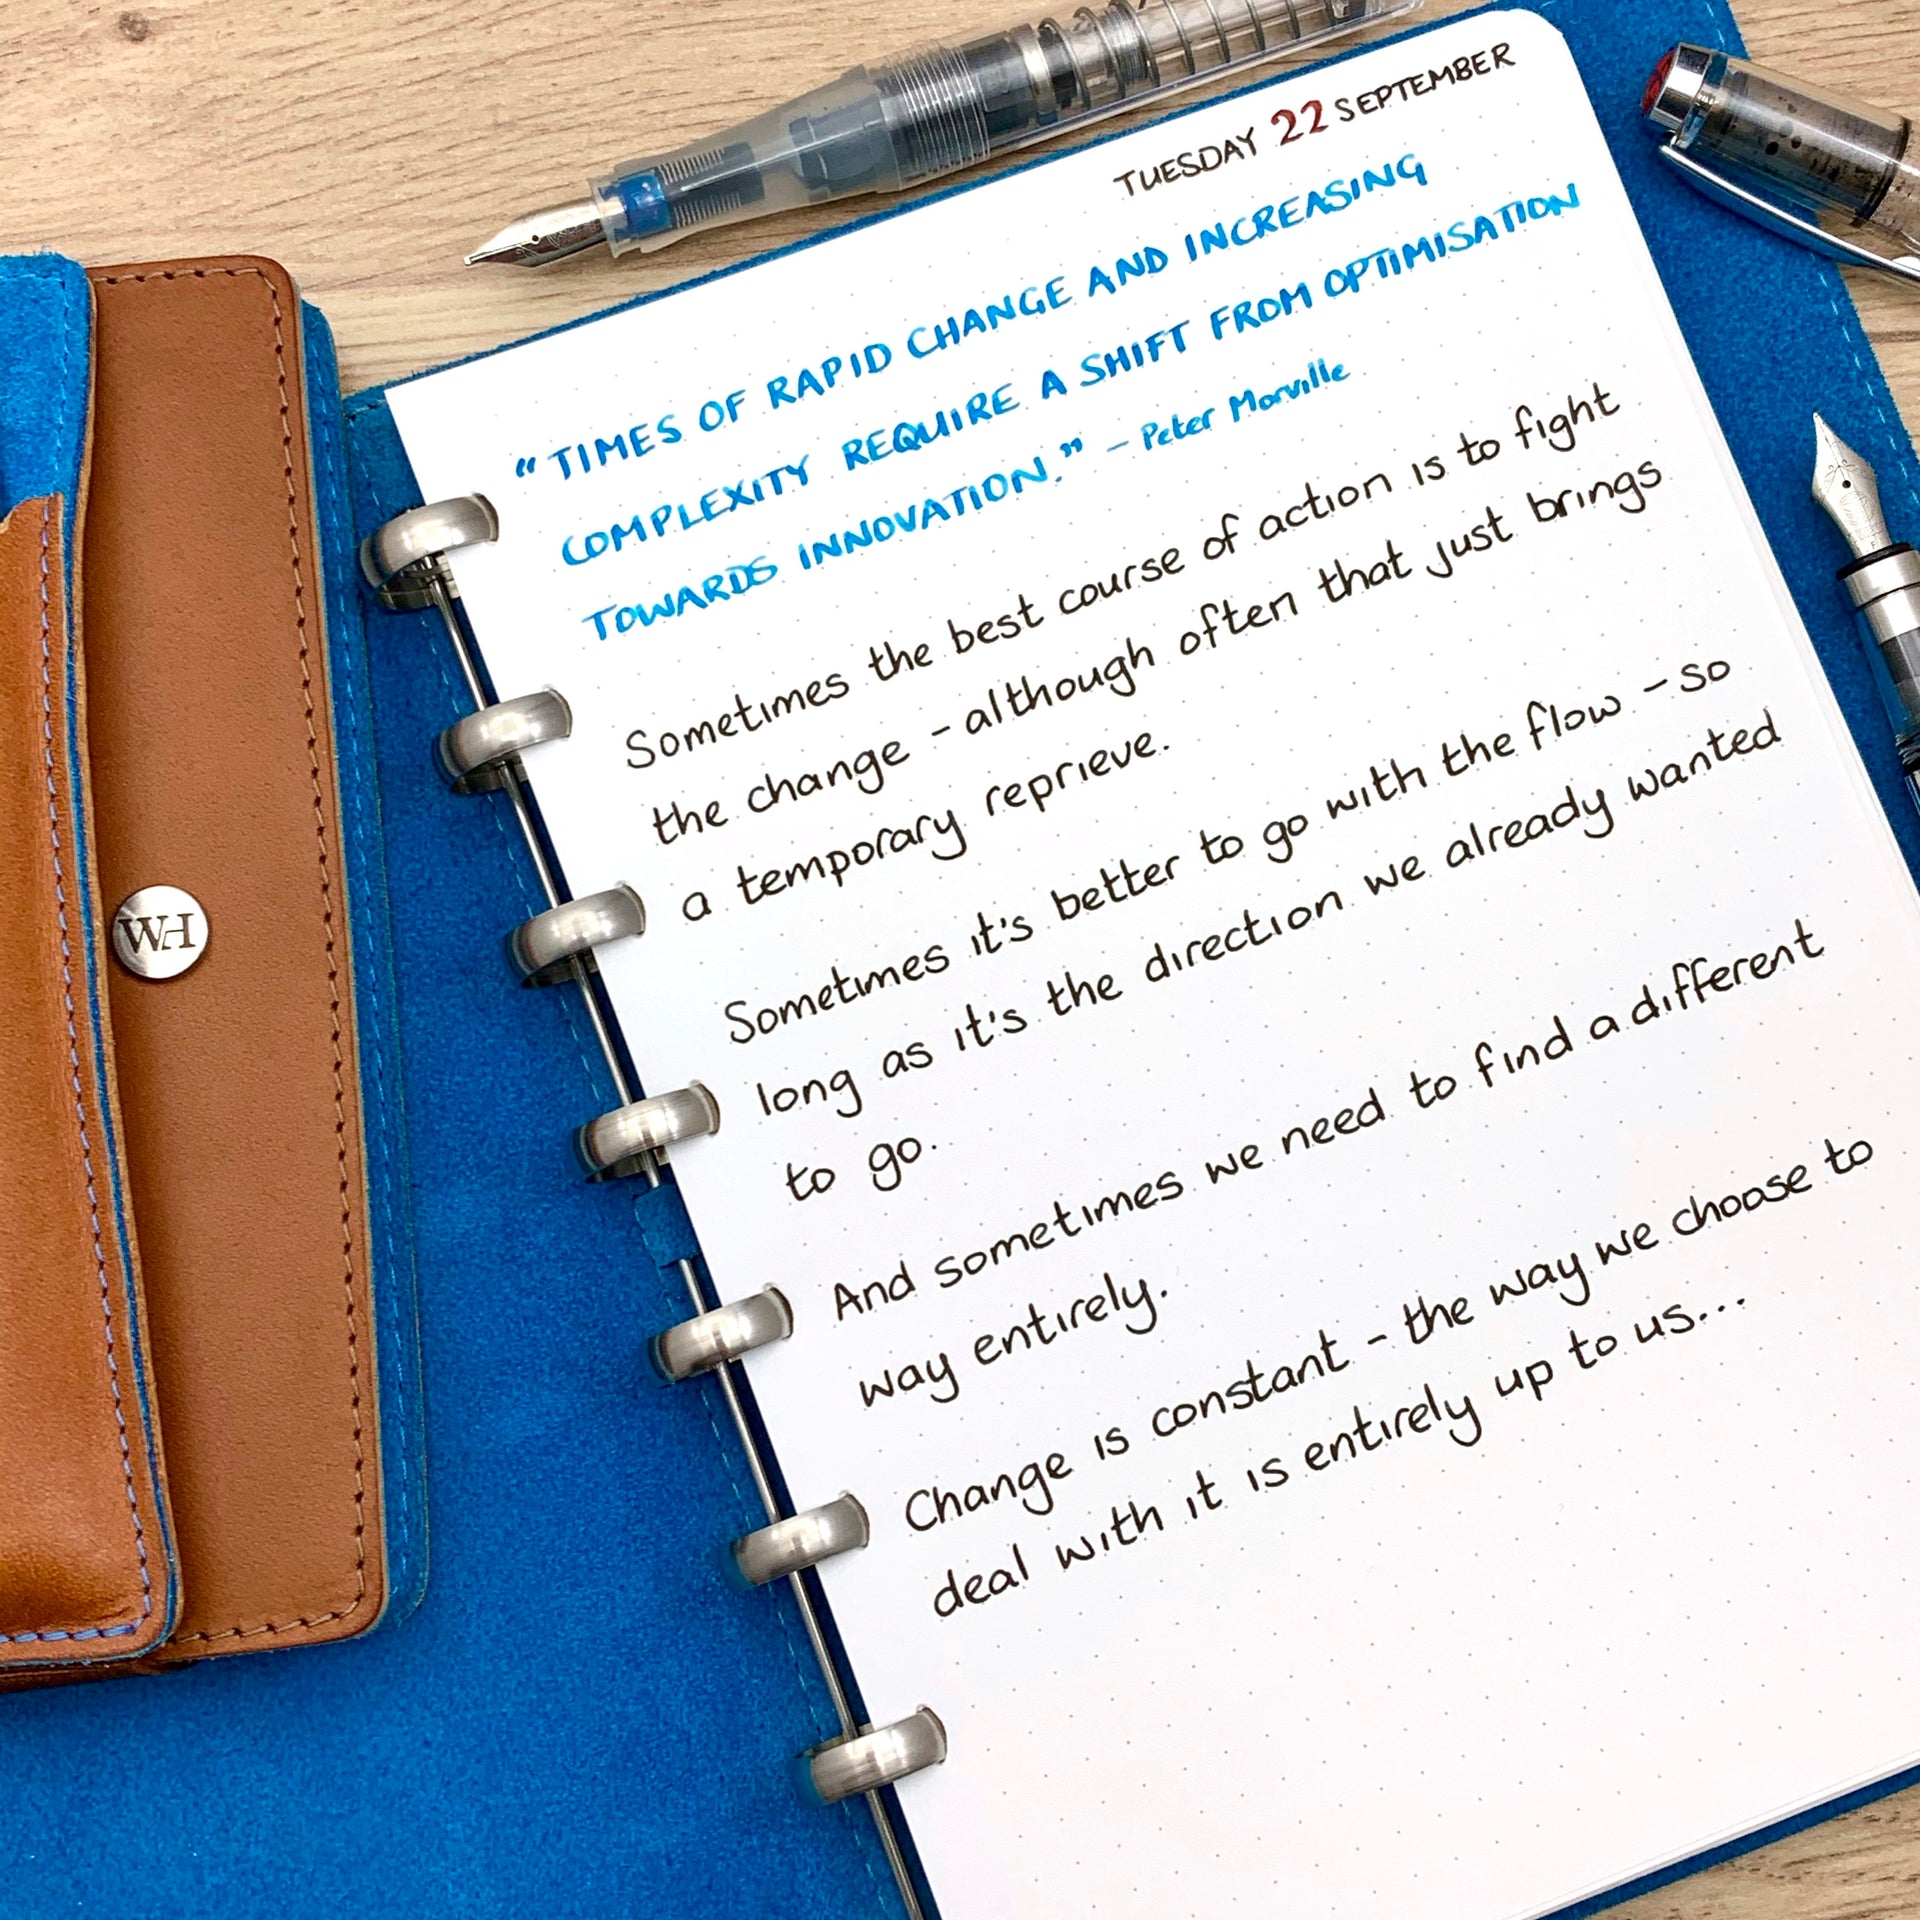 TUESDAY 22 SEPTEMBER
"TIMES OF RAPID CHANGE AND INCREASING
COMPLEXITY REQUIRE A SHIFT FROM OPTIMISATION
TOWARDS INNOVATION." - Peter Morville
Sometimes the best course of action is to fight
the change - although often that just brings
a temporary reprieve.
Sometimes it's better to go with the flow - so
long as it's the direction we already wanted
to go.
And sometimes we need to find a different
way entirely.
Change is constant - the way we choose to
deal with it is entirely up to us...
WH